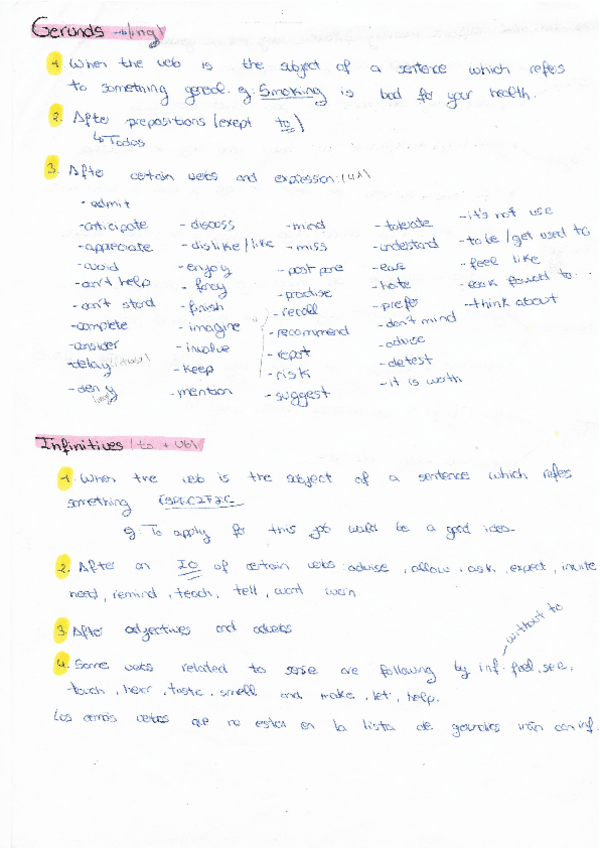 Gerunds → (ing)
1. When the veb is the subject of a sentence which refers
to something general. eg: Smoking is bad for your health.
2. After prepositions (exept to)
↳ Todas
3. After certain vebs and expression:
- admit
- anticipate - discuss - mind - tolerate - it's not use
- appreciate - dislike / like - miss - understand - to be / get used to
- avoid - enjoy - post pone - hate - feel like
- can't help - fancy - practise - look foward to
- can't stand - finish - recall - prefer - think about
- complete - imagine - recommend - don't mind
- consider - involve - report - advise
- delay - keep - risk - detest
- deny - mention - suggest - it is worth
Infinitives (to + vb)
1. When the veb is the subject of a sentence which refers
something SPECIFIC
eg: To apply for this job would be a good idea.
2. After an IO of certain vebs: advise, allow, ask, expect, invite
need, remind, teach, tell, want, warn
3. After adjectives and adverbs
without to
4. Some vebs related to sense are following by inf. feel, see,
touch, hear, taste, smell and make, let, help.
Los demás vebos que no estan en la lista de gerundios irán con inf.